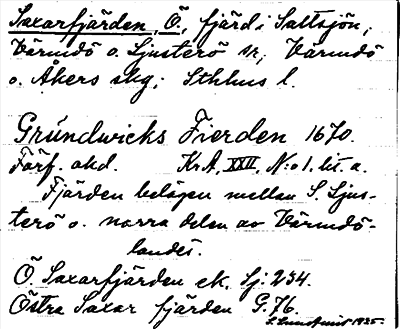 Saxarfjärden, Ö, fjärd i Saltsjön,
Värmdö o. Ljusterö sr, Värmdö
o. Åkers skg; Sthlms l.
Gründwicks Fierden 1670.
Färf. akd. KrA, XXII, N:o 1, lit. a.
Fjärden belägen mellan S. Ljus-
terö o. norra delen av Värmdö-
landet.
Ö Saxarfjärden ek. Sj: 234.
Östra Saxar fjärden G. 76.
1935.